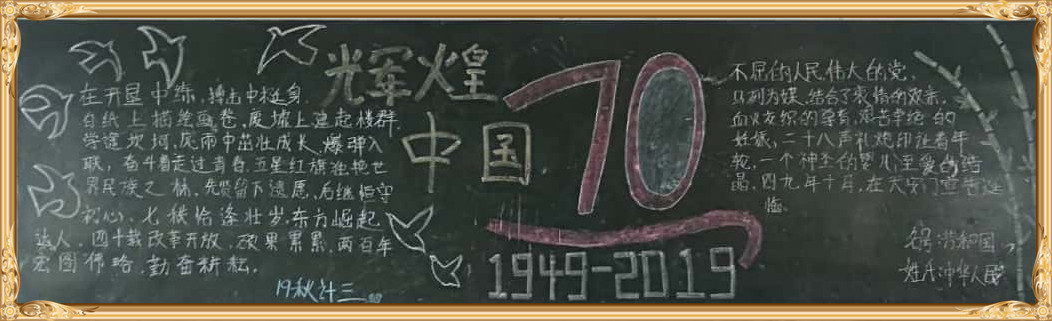 在开显中练，搏击中挺身，
白纸上描绘画卷，废墟上建起楼群
学途坎坷，风雨中茁壮成长，爆弹入
联，奋斗着走过青春，五星红旗独艳世
界民族之林，先贤留下遗愿，后继恒守
初心，七秩恰逢壮岁，东方崛起
达人，四十载改革开放，硕果累累，两百年
宏图伟略，勤奋耕耘。
19秋计三
辉煌
中国
70
1949-2019
不屈的人民，伟大的党，
马列为媒，结合了衷情的双亲，
血火交织的
二十八声礼炮印证着年
轮，一个神圣的婴儿至爱的结
晶，四九年十月，在天安门宣告诞
临。
名号：共和国
姓氏：中华人民